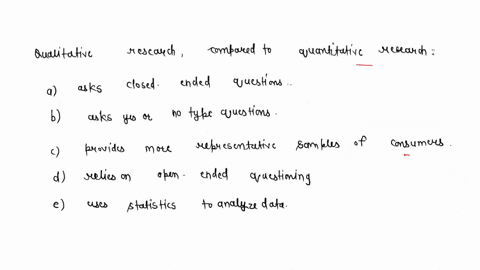 Qualitative research, compared to quantitative research:
a) asks closed. ended questions..
b) asks yes or no type questions.
c) provides more representative samples of consumers.
d) relies on open. ended questioning
e) uses statistics to analyze data.